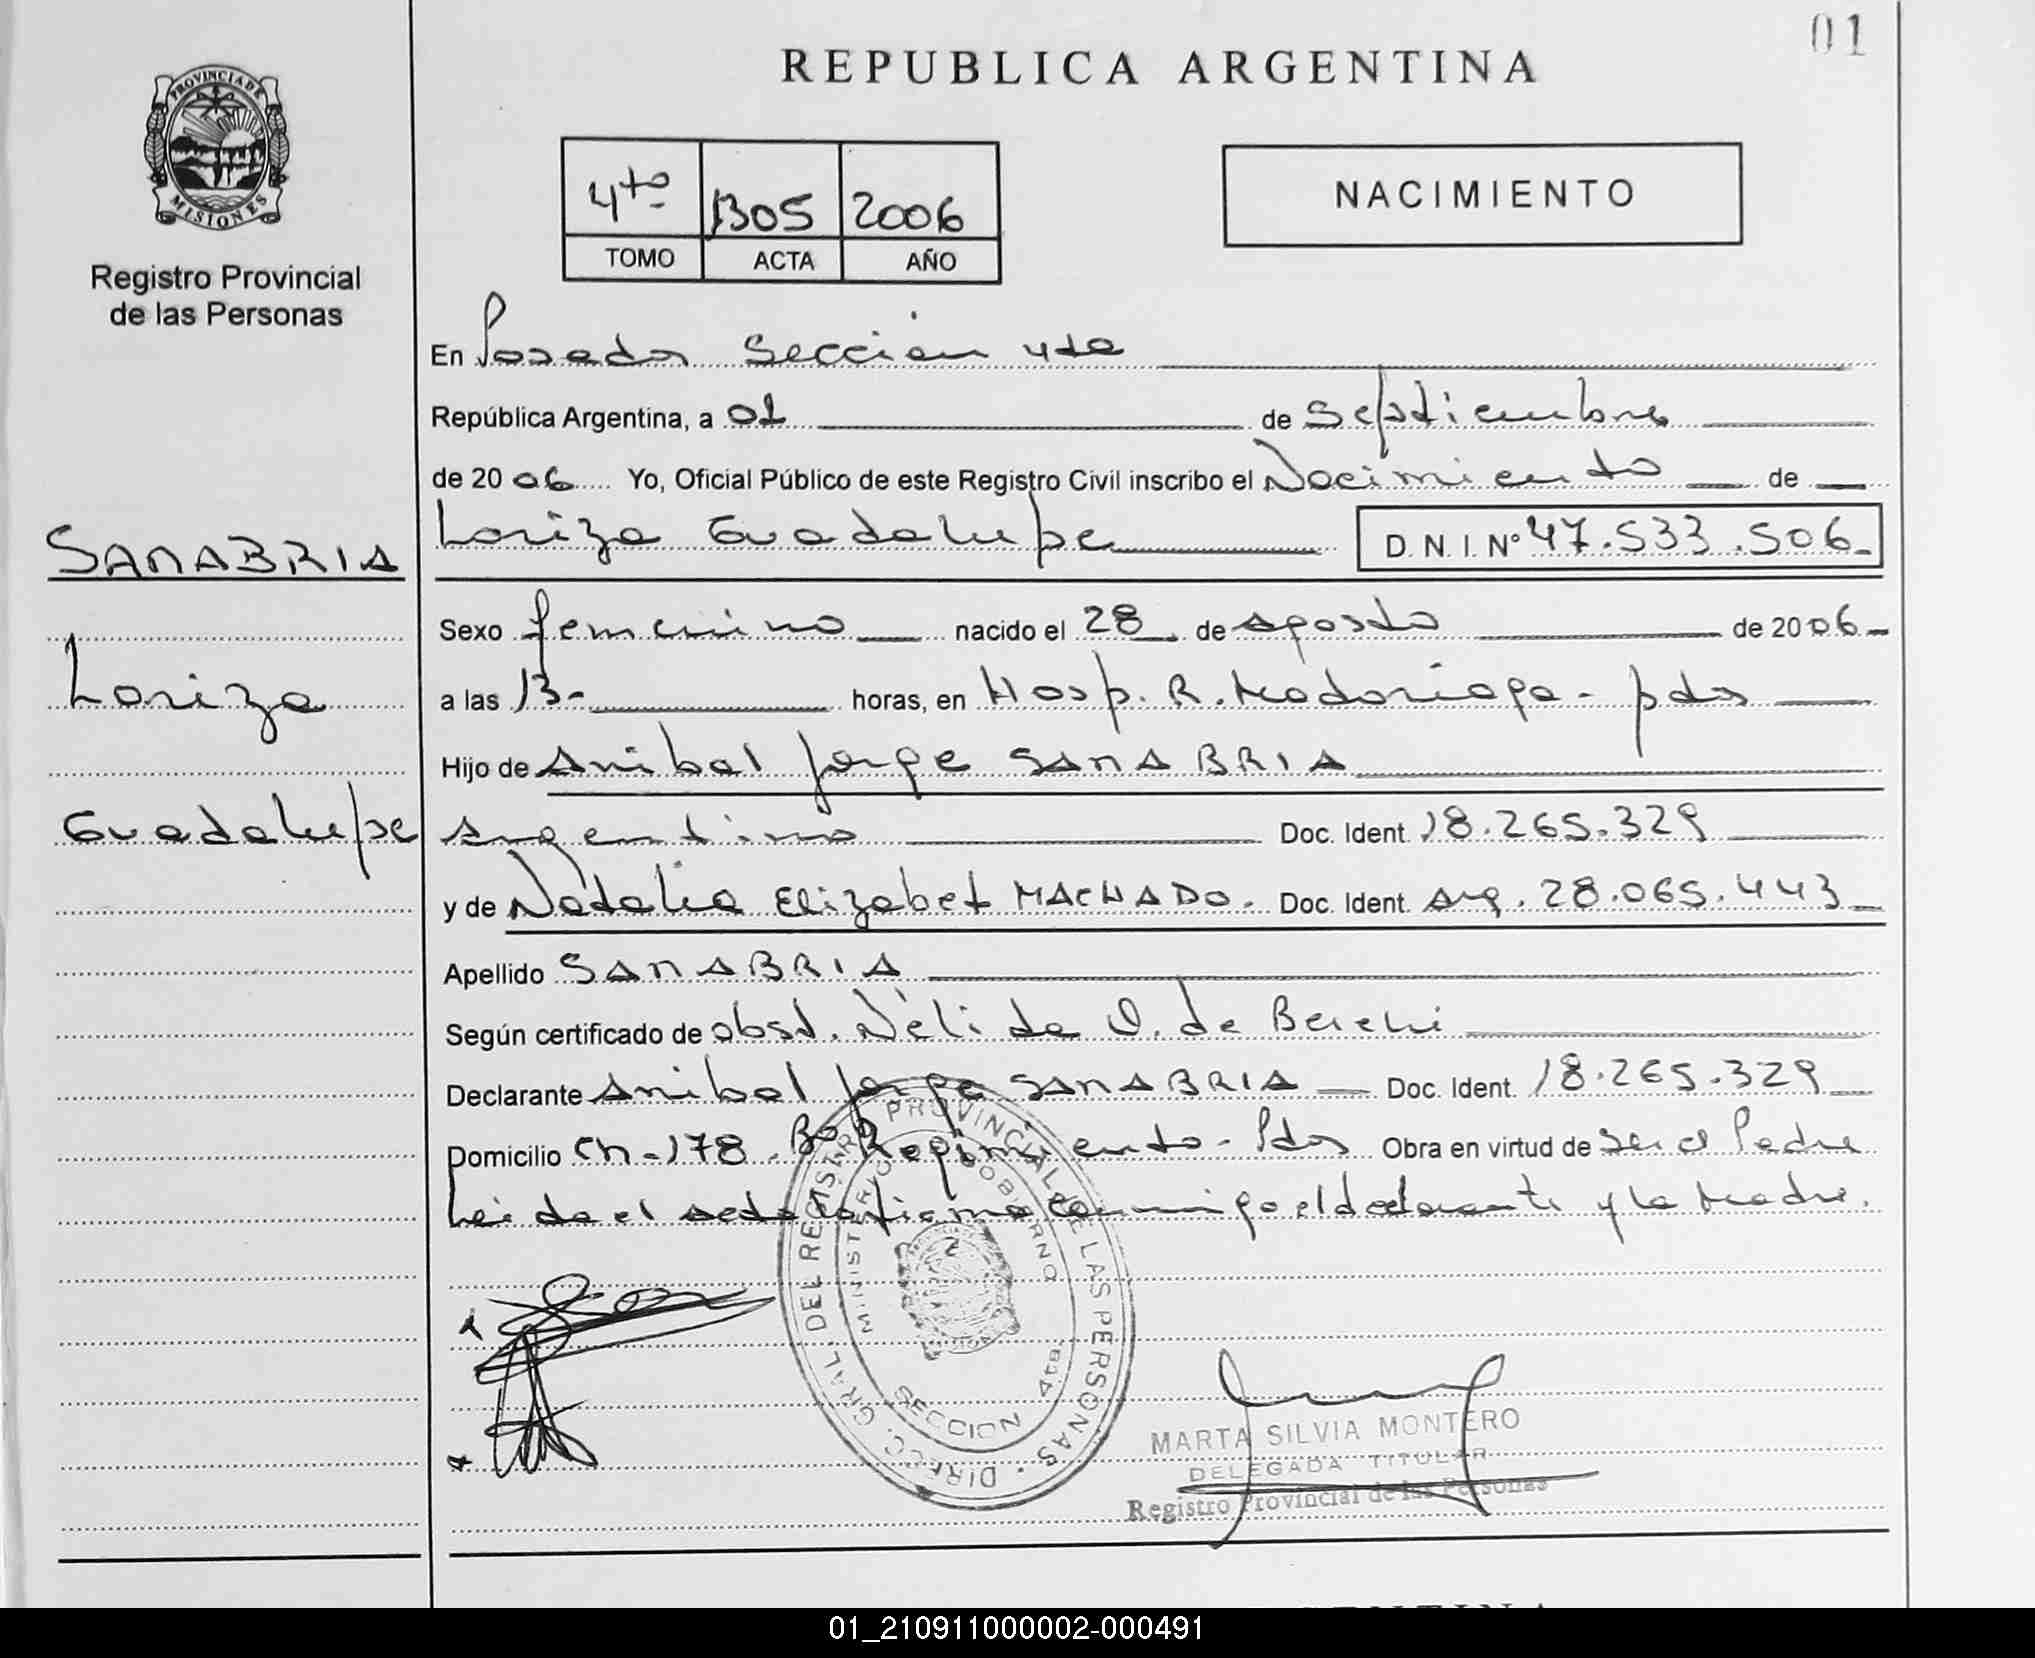 01
REPUBLICA ARGENTINA
PROVINCIA DE
MISIONES
Registro Provincial
de las Personas
4to 1305 2006
TOMO ACTA AÑO
NACIMIENTO
En Posadas Sección 4ta
República Argentina, a 01 de Septiembre
de 2006 Yo, Oficial Público de este Registro Civil inscribo el Nacimiento de
SANABRIA
Loriza
Guadalupe
Loriza Guadalupe D.N.I. Nº 47.533.506
Sexo femenino nacido el 28 de Agosto de 2006
a las 13- horas, en Hosp. R. Madariaga - pdas
Hijo de Anibal Jorge SANABRIA
Argentino Doc. Ident. 18.265.329
y de Natalia Elizabet MACHADO. Doc. Ident. Arg. 28.065.443
Apellido SANABRIA
Según certificado de obst. Nélida O. de
Declarante Anibal Jorge SANABRIA Doc. Ident. 18.265.329
Domicilio Ch-178. Bo Regimiento - Pdas Obra en virtud de ser el Padre
Leida el acta la firma conmigo el declarante y la Madre.
DIREC. GRAL. DEL REGISTRO PROVINCIAL DE LAS PERSONAS
MINISTERIO GOBIERNO
SECCION 4ta.
MARTA SILVIA MONTERO
DELEGADA TITULAR
Registro Provincial de las Personas
01_210911000002-000491